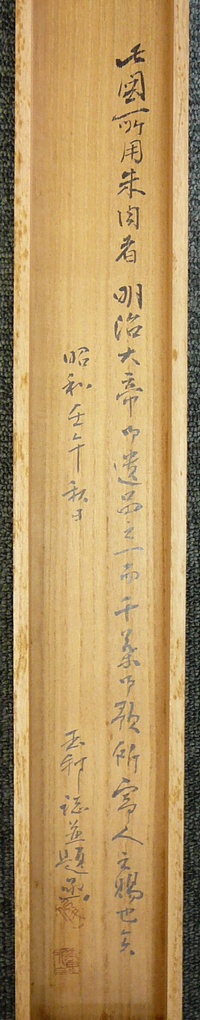 此圖所用朱肉者 明治大帝御遺品之一而千葉御歌所寄人之賜也矣
昭和壬午秋日
玉邨 誌並題函